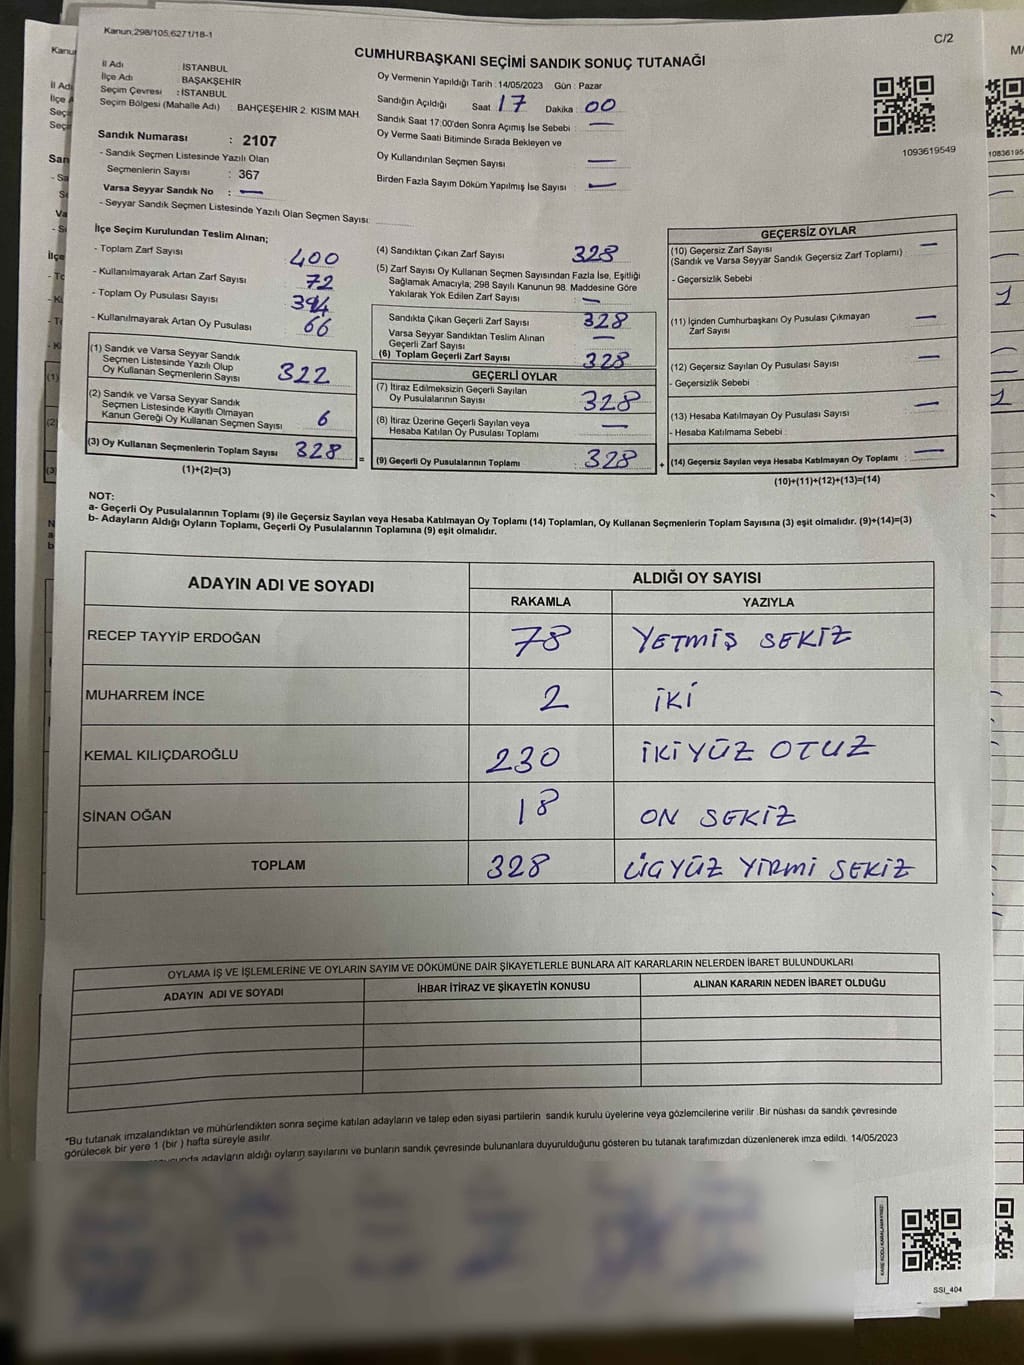 Kanun;298/105,6271/18-1
C/2
CUMHURBAŞKANI SEÇİMİ SANDIK SONUÇ TUTANAĞI
İl Adı : İSTANBUL
İlçe Adı : BAŞAKŞEHİR
Seçim Çevresi : İSTANBUL
Seçim Bölgesi (Mahalle Adı) : BAHÇEŞEHİR 2. KISIM MAH.
Sandık Numarası : 2107
- Sandık Seçmen Listesinde Yazılı Olan
Seçmenlerin Sayısı : 367
Varsa Seyyar Sandık No : —
- Seyyar Sandık Seçmen Listesinde Yazılı Olan Seçmen Sayısı:
Oy Vermenin Yapıldığı Tarih :14/05/2023 Gün : Pazar
Sandığın Açıldığı Saat 17 Dakika 00
Sandık Saat 17:00'den Sonra Açımış İse Sebebi : —
Oy Verme Saati Bitiminde Sırada Bekleyen ve
Oy Kullandırılan Seçmen Sayısı —
Birden Fazla Sayım Döküm Yapılmış İse Sayısı : —
1093619549
İlçe Seçim Kurulundan Teslim Alınan;
- Toplam Zarf Sayısı : 400
- Kullanılmayarak Artan Zarf Sayısı : 72
- Toplam Oy Pusulası Sayısı : 394
- Kullanılmayarak Artan Oy Pusulası : 66
(1) Sandık ve Varsa Seyyar Sandık
Seçmen Listesinde Yazılı Olup
Oy Kullanan Seçmenlerin Sayısı : 322
(2) Sandık ve Varsa Seyyar Sandık
Seçmen Listesinde Kayıtlı Olmayan
Kanun Gereği Oy Kullanan Seçmen Sayısı : 6
(3) Oy Kullanan Seçmenlerin Toplam Sayısı : 328
(1)+(2)=(3)
=
(4) Sandıktan Çıkan Zarf Sayısı : 328
(5) Zarf Sayısı Oy Kullanan Seçmen Sayısından Fazla İse, Eşitliği
Sağlamak Amacıyla; 298 Sayılı Kanunun 98. Maddesine Göre
Yakılarak Yok Edilen Zarf Sayısı : —
Sandıkta Çıkan Geçerli Zarf Sayısı : 328
Varsa Seyyar Sandıktan Teslim Alınan
Geçerli Zarf Sayısı : —
(6) Toplam Geçerli Zarf Sayısı : 328
GEÇERLİ OYLAR
(7) İtiraz Edilmeksizin Geçerli Sayılan
Oy Pusulalarının Sayısı : 328
(8) İtiraz Üzerine Geçerli Sayılan veya
Hesaba Katılan Oy Pusulası Toplamı : —
(9) Geçerli Oy Pusulalarının Toplamı : 328
+
GEÇERSİZ OYLAR
(10) Geçersiz Zarf Sayısı : —
(Sandık ve Varsa Seyyar Sandık Geçersiz Zarf Toplamı)
- Geçersizlik Sebebi
(11) İçinden Cumhurbaşkanı Oy Pusulası Çıkmayan
Zarf Sayısı : —
(12) Geçersiz Sayılan Oy Pusulası Sayısı : —
- Geçersizlik Sebebi
(13) Hesaba Katılmayan Oy Pusulası Sayısı : —
- Hesaba Katılmama Sebebi
(14) Geçersiz Sayılan veya Hesaba Katılmayan Oy Toplamı : —
(10)+(11)+(12)+(13)=(14)
NOT:
a- Geçerli Oy Pusulalarının Toplamı (9) ile Geçersiz Sayılan veya Hesaba Katılmayan Oy Toplamı (14) Toplamları, Oy Kullanan Seçmenlerin Toplam Sayısına (3) eşit olmalıdır. (9)+(14)=(3)
b- Adayların Aldığı Oyların Toplamı, Geçerli Oy Pusulalarının Toplamına (9) eşit olmalıdır.
ADAYIN ADI VE SOYADI ALDIĞI OY SAYISI
RAKAMLA YAZIYLA
RECEP TAYYİP ERDOĞAN 78 YETMİŞ SEKİZ
MUHARREM İNCE 2 İKİ
KEMAL KILIÇDAROĞLU 230 İKİYÜZ OTUZ
SİNAN OĞAN 18 ON SEKİZ
TOPLAM 328 ÜÇYÜZ YİRMİ SEKİZ
OYLAMA İŞ VE İŞLEMLERİNE VE OYLARIN SAYIM VE DÖKÜMÜNE DAİR ŞİKAYETLERLE BUNLARA AİT KARARLARIN NELERDEN İBARET BULUNDUKLARI
ADAYIN ADI VE SOYADI İHBAR İTİRAZ VE ŞİKAYETİN KONUSU ALINAN KARARIN NEDEN İBARET OLDUĞU
"Bu tutanak imzalandıktan ve mühürlendikten sonra seçime katılan adayların ve talep eden siyasi partilerin sandık kurulu üyelerine veya gözlemcilerine verilir .Bir nüshası da sandık çevresinde
görülecek bir yere 1 (bir ) hafta süreyle asılır.
adayların aldığı oyların sayılarını ve bunların sandık çevresinde bulunanlara duyurulduğunu gösteren bu tutanak tarafımızdan düzenlenerek imza edildi. 14/05/2023
SSI_404